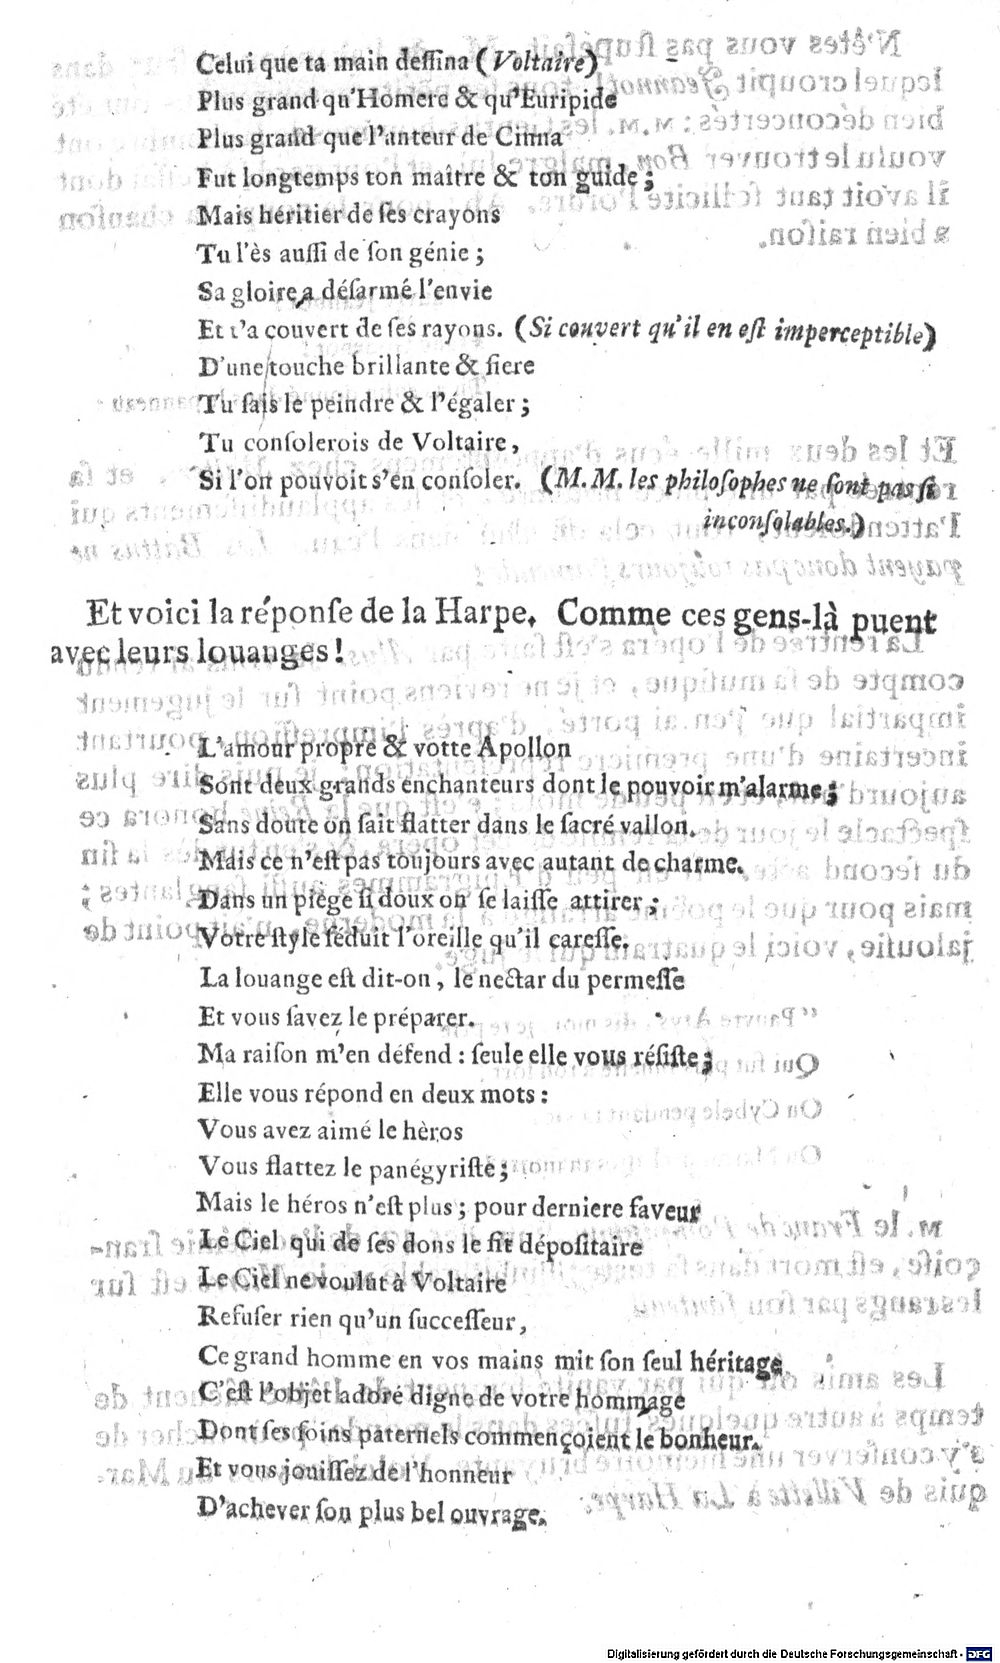 Celui que ta main deſſina (Voltaire)
Plus grand qu'Homere & qu'Euripide
Plus grand que l'anteur de Cinna
Fut longtemps ton maitre & ton guide ;
Mais héritier de ſes crayons
Tu l'ès auſſi de ſon génie ;
Sa gloire a déſarmé l'envie
Et t'a couvert de ſes rayons. (Si couvert qu'il en eſt imperceptible)
D'une touche brillante & fiere
Tu ſais le peindre & l'égaler ;
Tu conſolerois de Voltaire,
Si l'on pouvoit s'en conſoler. (M. M. les philoſophes ne ſont pas ſi
inconſolables.)
Et voici la réponſe de la Harpe. Comme ces gens-là puent
avec leurs louanges !
L'amour propre & votte Apollon
Sont deux grands enchanteurs dont le pouvoir m'alarme ;
Sans doute on ſait flatter dans le ſacré vallon.
Mais ce n'eſt pas toujours avec autant de charme.
Dans un piège ſi doux on ſe laiſſe attirer ;
Votre ſtyle féduit l'oreille qu'il careſſe.
La louange eſt dit-on, le nectar du permeſſe
Et vous ſavez le préparer.
Ma raiſon m'en défend : ſeule elle vous réſiſte ;
Elle vous répond en deux mots :
Vous avez aimé le hèros
Vous flattez le panégyriſte ;
Mais le héros n'eſt plus ; pour derniere faveur
Le Ciel qui de ſes dons le fit dépoſitaire
Le Ciel ne voulut à Voltaire
Refuſer rien qu'un ſucceſſeur,
Ce grand homme en vos mains mit ſon ſeul héritage
C'eſt l'objet adoré digne de votre hommage
Dont ſes ſoins paternels commençoient le bonheur.
Et vous jouiſſez de l'honneur
D'achever ſon plus bel ouvrage.
Digitalisierung gefördert durch die Deutsche Forschungsgemeinschaft - DFG